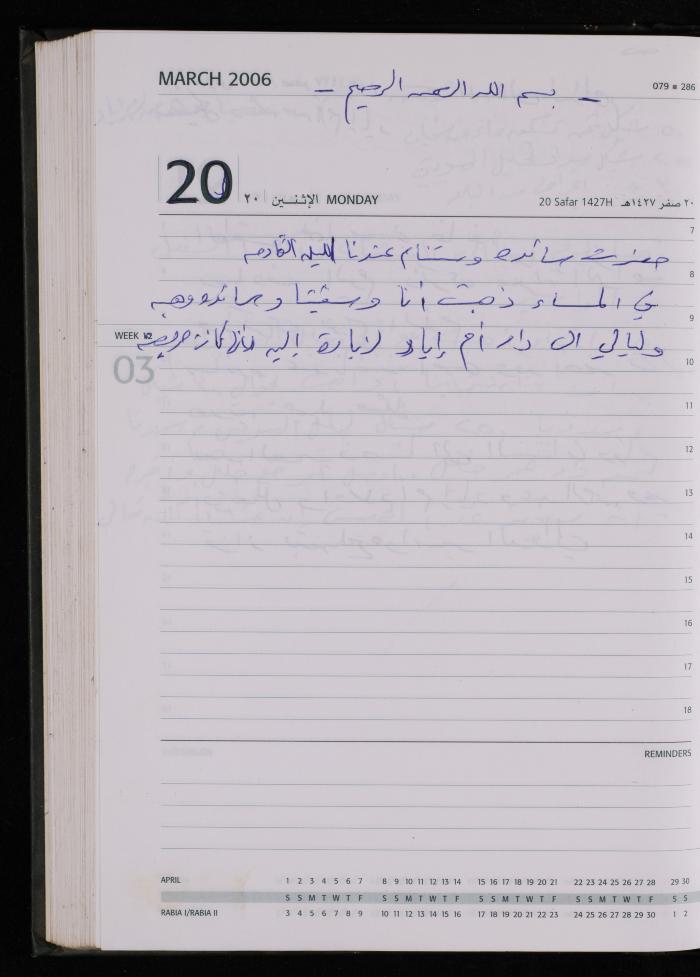 MARCH 2006
- بسم الله الرحمن الرحيم -
079 ■ 286
20 ٢٠ الإثنـــين MONDAY
20 Safar 1427H ٢٠ صفر ١٤٢٧هـ
7
حضرت سائده وستنام عندنا الليله القادمه
8
في المساء ذهبت أنا وسقيتا وسائده وهبه
9
WEEK 12
وليالي الى دار أم إياد لزيارة إليه كانت مريضه
10
03
11
12
13
14
15
16
17
18
REMINDERS
APRIL 1 2 3 4 5 6 7 8 9 10 11 12 13 14 15 16 17 18 19 20 21 22 23 24 25 26 27 28 29 30
S S M T W T F S S M T W T F S S M T W T F S S M T W T F S S
RABIA I/RABIA II 3 4 5 6 7 8 9 10 11 12 13 14 15 16 17 18 19 20 21 22 23 24 25 26 27 28 29 30 1 2